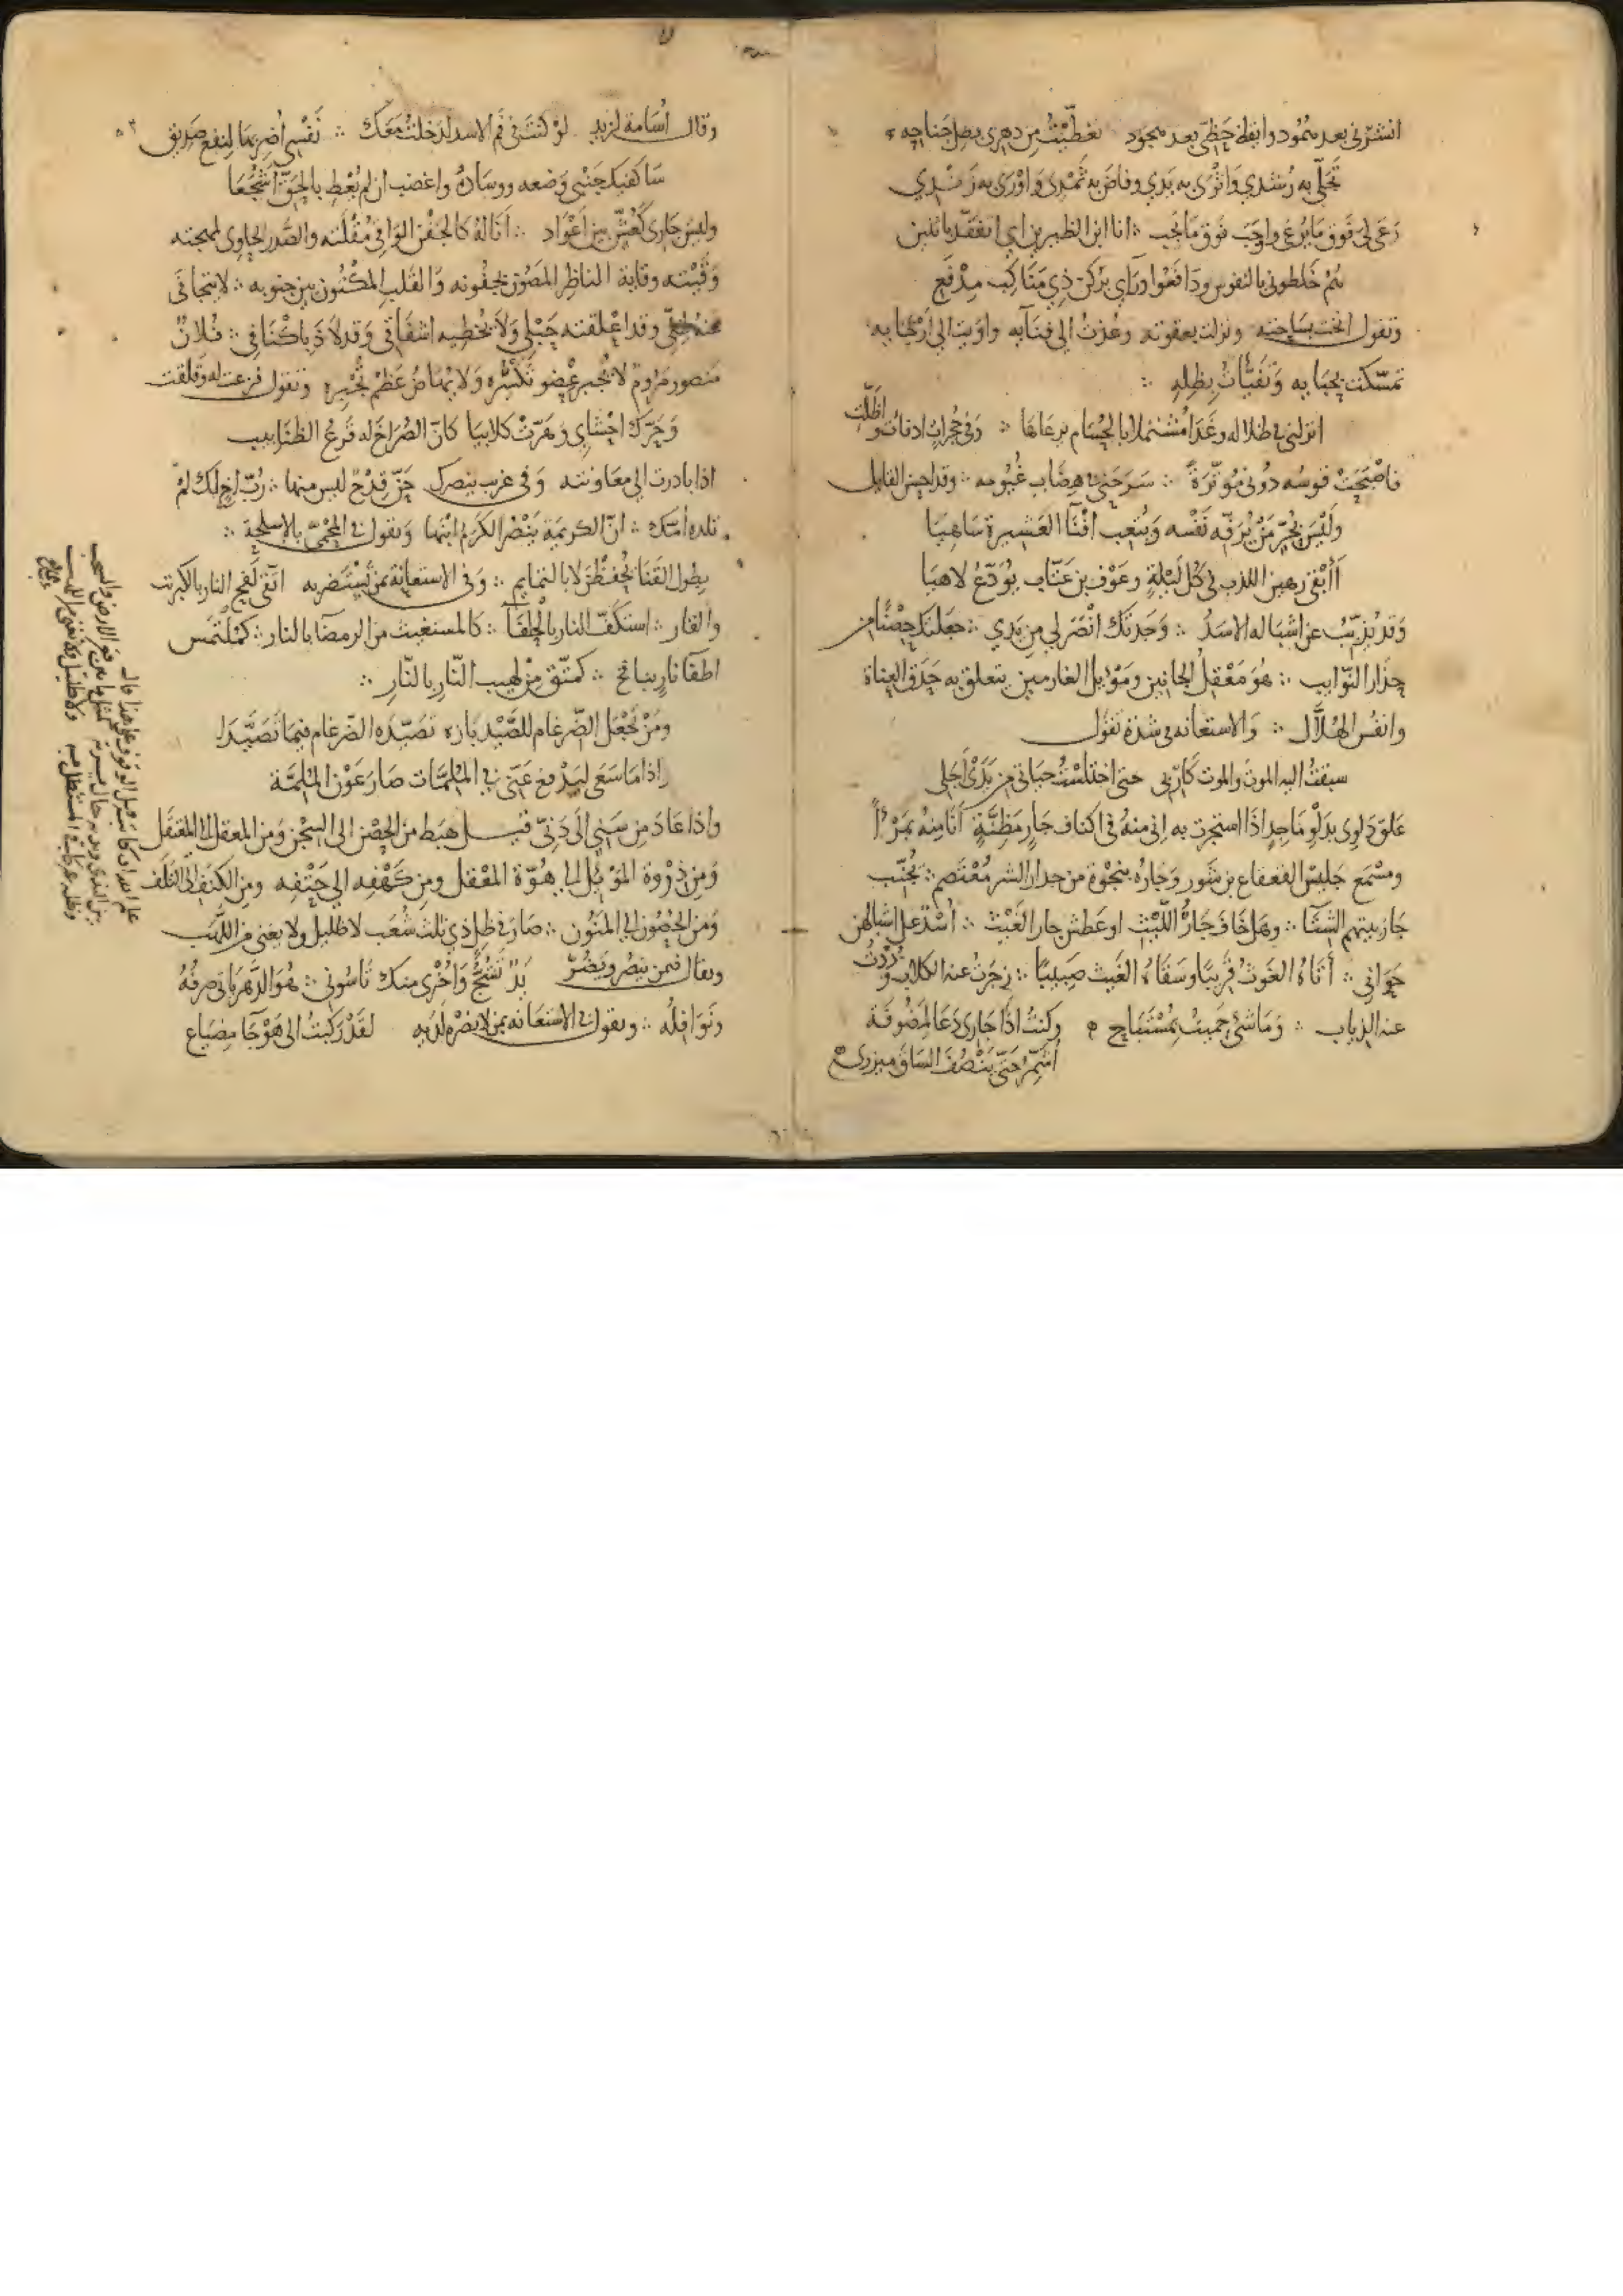 انشرني بعد همود وايقظ حظي بعد هجود تغطيت من دهري بظل جناحه
تجلى به رشدي واثرى به يدي وفاض به ثمدي واورى به زندي
رعى لي فوق ما يرعى واوجب فوق ما يجب ؞ انا ابن
هم خلطوني بالنفوس ودافعوا وراي بركن ذي مناكب مدفع
وتقول انخت بساحته ونزلت بعقوته وعذت الى فنآيه واويت الى ارحابه
تمسكت بحبايه وتفيّات بظله ؞
انزلني في ظلاله وغدا مشتملا بالحسام يرعاها ؞ وفي حجرات
فاصبحت قوسه دوني موترة ؞ سرحني في هضاب غيومه ؞ وقد احسن القايل
وليس بحر من يرفه نفسه ويتعب افنآ العشيرة ساهيا
أأبقى رهين الكذب في كل ليلة وعوف بن عتاب يودع لاهيا
وقد يذبب عن اشباله الاسد ؞ وجدتك انصر لي من يدي ؞ جعلتك حصنا من
حذار النوايب ؞ هو معقل الجانين ومويل الغارمين يتعلق به حدق العناة
وانفس الهلال ؞ والاستعانه في شدة تقول
سبقت اليه الموت والموت كاربي حتى اختلست حياتي من يدي اجلي
علق دلوي بدلو ماجد اذا استجرت به اني منه في اكناف جار مظنة انا منه بمرأ
ومسمع جليس القعقاع بن شور وجاره بنجوة من حذار الشر معتصم ؞ يجنب
جار بيتهم الشتآ ؞ وهل خاف جار الليث او عطش جار الغيث ؞ اسد على اشبالهن
حواني ؞ أتاه الغوث قريبا وسقاه الغيث صبيبا ؞ زجرت عنه الكلاب وذدت
عنه الذياب ؞ وما شي حميت بمستباح ؞ وكنت اذا جاري دعا لمضوفة
أشمر حتى ينصف الساق ميزري
وقال أسامة لزيد لو كنت في فم الاسد لدخلت معك ؞ نفسي أضر بها لنفع صديق
ساكفيك جنبي وضعه ووساده واغضب ان لم يعط بالحق اشجعا
وليس جاري كعش بين أعواد ؞ أنا له كالجفن الواقي مقلته والصدر الحاوي لمهجته
وقيته وقاية الناظر المصون بجفونه والقلب المكنون بين جنوبه ؞ لا يتجافى
عنه وقد اعلقته حبلي ولا يخطيه اشفاقي وقد لاذ باكنافي ؞ فلان
منصور مروم لا يجبر عضو تكسره ولا يهاض عظم تجبره وتقول فزعت له وقلقت
وحرك احشاي وهرت كلابيا كان الصراخ له قرع الظنابيب
اذا بادرت الى معاونته وفي غريب ينصرك حن قدح ليس منها ؞ رب اخ لك لم
تلده أمك ؞ ان الكريمة ينصر الكرم ابنها وتقول في المحمي بالاسلحة ؞
بطول القنا يحفظن لا بالتمايم ؞ وفي الاستعانة بمن يستضر به اتقى لفح النار بالكبريت
والقار ؞ استكف النار بالحلفآ ؞ كالمستغيث من الرمضآ بالنار ؞ كملتمس
اطفآ نار بنافخ ؞ كمتق من لهيب النار بالنار ؞
ومن يجعل الضرغام للصيد بازه تصيده الضرغام فيما تصيدا
إذا ما سعى ليدفع عني في الملمات صار عون الملمة
واذا عاد من سني الى دني قيل هبط من الحصن الى السجن ومن المعقل الى المعتقل
ومن ذروة الموئل الى هوة المعقل ومن كهفه الى حتفه ومن الكنف الى التلف
ومن الحصون الى المنون ؞ صار في ظل ذي ثلث شعب لا ظليل ولا يغني من اللهب
ويقال فيمن ينصر ويضر يد تشج واخرى منك تاسوني ؞ هو الدهر ياتي صرفه
ونوافله ؞ وتقول في الاستعانه بمن لا نصره لديه لقد ركبت الى هوجآ مضياع